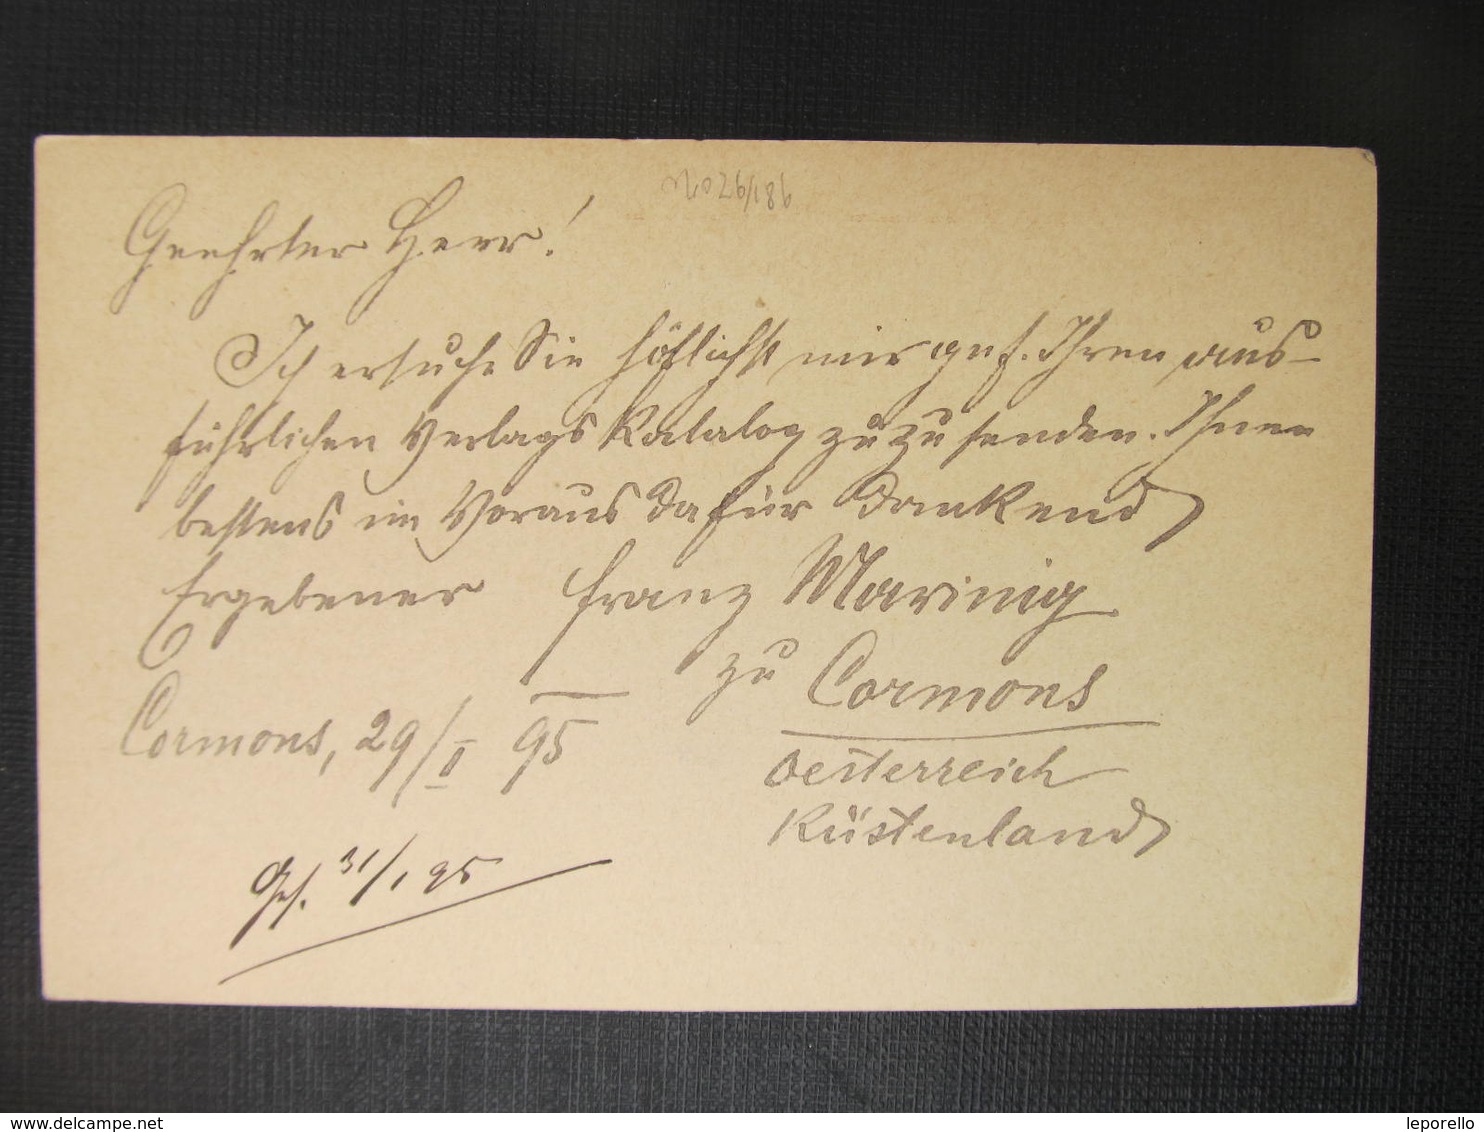 Geehrter Herr!
Ich ersuche Sie höflichst mir gef. Ihren aus-
führlichen Verlags Katalog zuzusenden. Ihnen
bestens im Voraus dafür dankend
Ergebener Franz Marinig
zu Cormons
Oesterreich
Küstenland
Cormons, 29/I 95
31/1 95
delcampe.net
leporello